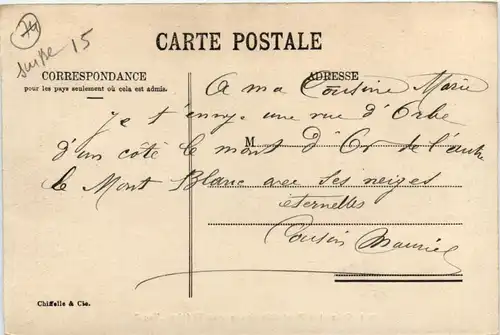 74
suisse 15
CARTE POSTALE
CORRESPONDANCE
pour les pays seulement où cela est admis.
ADRESSE
A ma Cousine Marie
Je t'envoye une vue d'Orbe
M
d'un côté le mont d'Or de l'autre
le Mont Blanc avec ses neiges
éternelles
Cousin Maurice
Chiffelle & Cie.